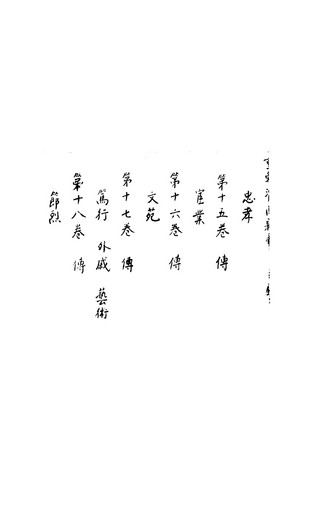 忠孝
第十五卷 傳
宦業
第十六卷 傳
文苑
第十七卷 傳
篤行 外戚 藝術
第十八卷 傳
節烈